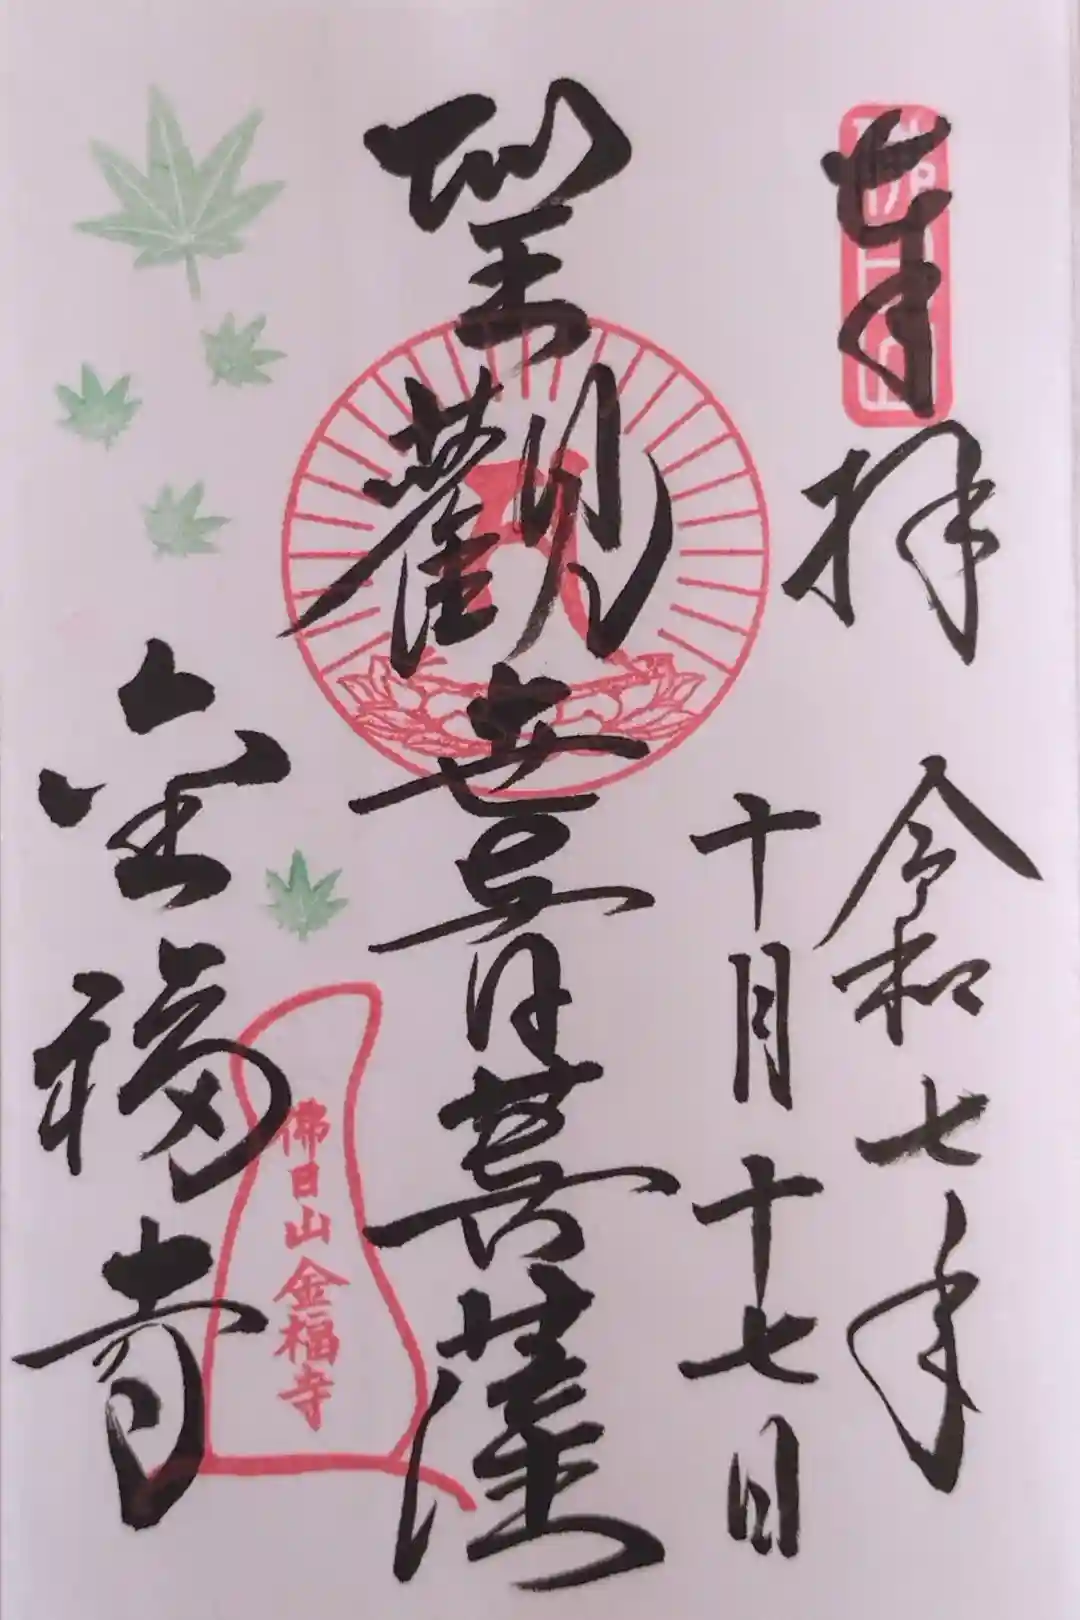 奉拝
令和七年
十月十七日
聖觀世音菩薩
金福寺
佛日山金福寺